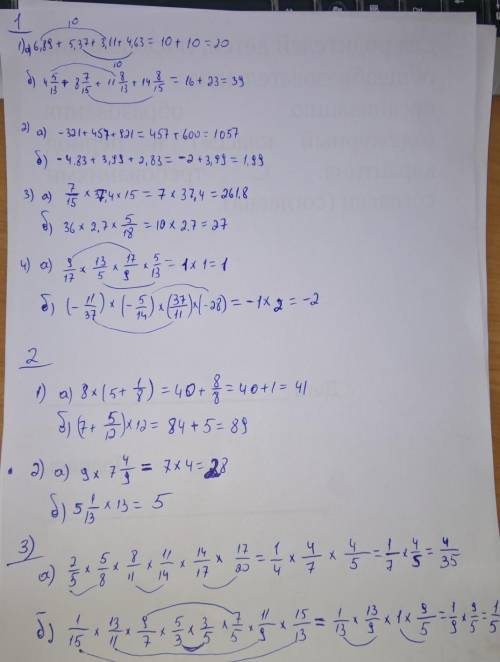 1
10
1) а) 6,89 + 5,37 + 3,11 + 4,63 = 10 + 10 = 20
10
б) 4 5/13 + 8 7/15 + 11 8/13 + 14 8/15 = 16 + 23 = 39
2) а) -321 + 457 + 921 = 457 + 600 = 1057
б) -4.83 + 3,99 + 2,83 = -2 + 3,99 = 1,99
3) а) 7/15 × 37,4 × 15 = 7 × 37,4 = 261,8
б) 36 × 2,7 × 5/18 = 10 × 2.7 = 27
4) а) 9/17 × 13/5 × 17/9 × 5/13 = 1 × 1 = 1
б) (- 11/37) × (- 5/14) × (37/11) × (-28) = -1 × 2 = -2
2
1) а) 8 × (5 + 1/8) = 40 + 8/8 = 40 + 1 = 41
б) (7 + 5/12) × 12 = 84 + 5 = 89
2) а) 9 × 7 4/9 = 7 × 4 = 28
б) 5 1/13 × 13 = 5
3)
а) 2/5 × 5/8 × 8/11 × 11/14 × 14/17 × 17/20 = 1/4 × 4/7 × 4/5 = 1/7 × 4/5 = 4/35
б) 1/15 × 13/11 × 9/7 × 5/3 × 3/5 × 7/5 × 11/9 × 15/13 = 1/13 × 13/9 × 1 × 9/5 = 1/9 × 9/5 = 1/5